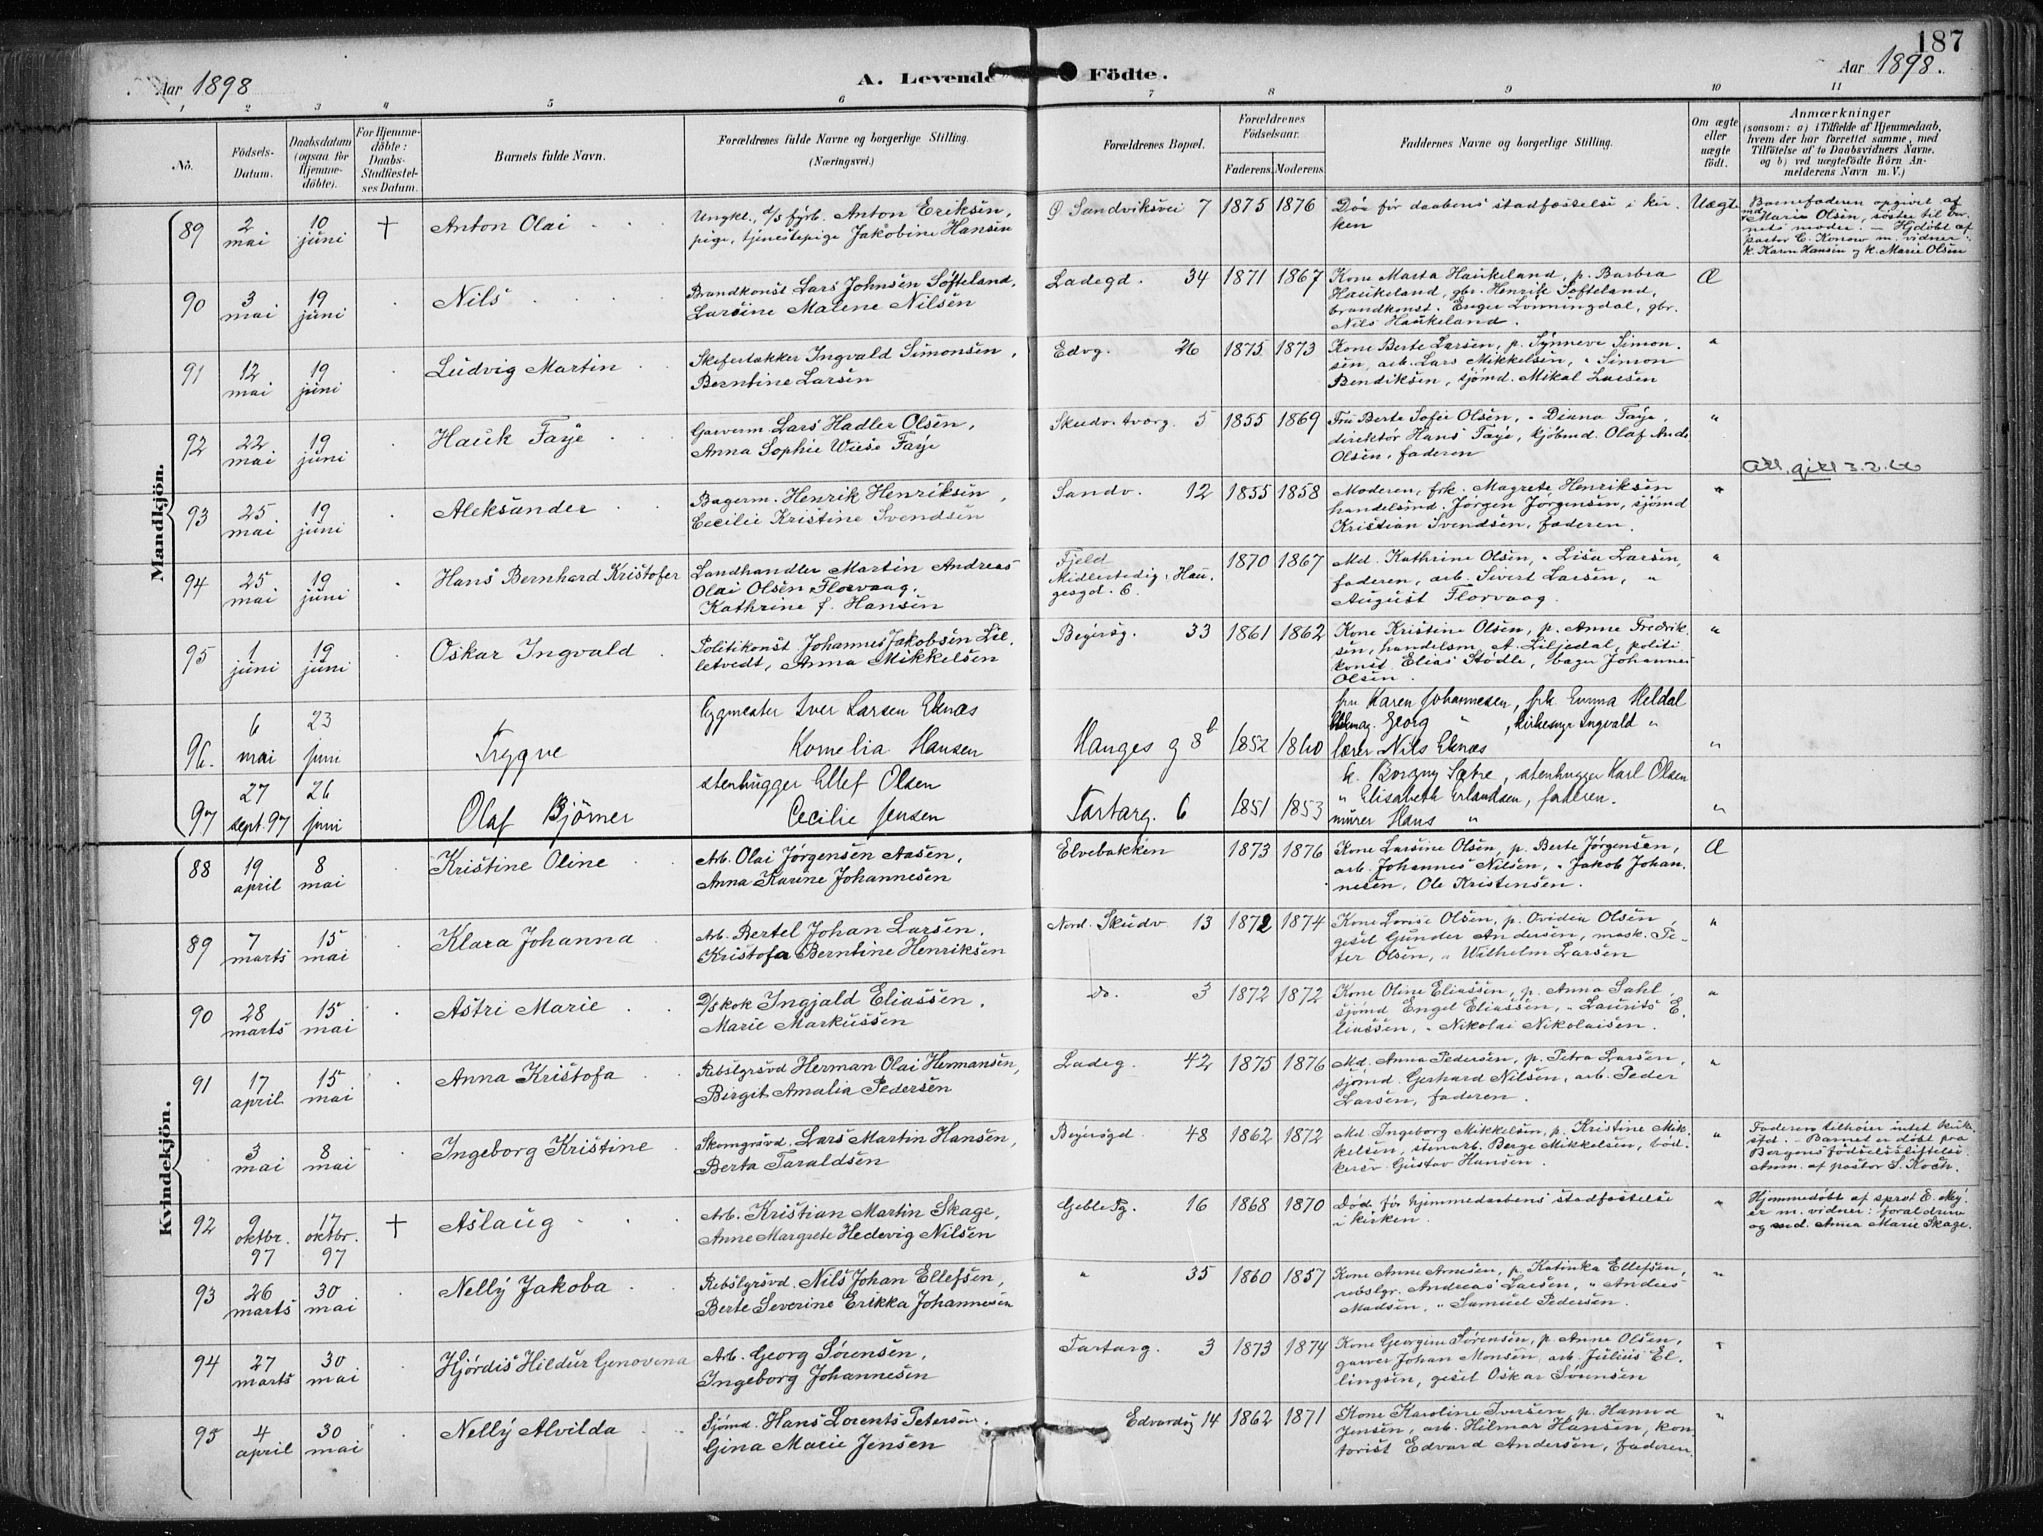 187
Aar 1898
A. Levende Födte.
Aar 1898.
1 2 3 4 5 6 7 8 9 10 11
No.
Födsels-Datum.
Daabsdatum (ogsaa for Hjemme-döbte).
For Hjemme-döbte: Daabs-Stadfæstel-ses Datum.
Barnets fulde Navn.
Forældrenes fulde Navne og borgerlige Stilling. (Næringsvei.)
Forældrenes Bopæl.
Forældrenes Födselsaar.
Faderens Moderens
Faddernes Navne og borgerlige Stilling.
Om ægte eller uægte födt.
Anmærkninger
(saasom: a) i Tilfælde af Hjemmedaab,
hvem der har forrettet samme, med
Tilföielse af to Daabsvidners Navne,
og b) ved uægtefödte Börn An-
melderens Navn m. V.)
Mandkjön.
89 2 mai 10 juni † Anton Olai
Ungkl., d/s fyrb. Anton Eriksen,
pige, tjenestepige Jakobine Hansen
Ø Sandviksvei 7 1875 1876
Død før daabens stadfæstelse i kir-
ken
Uægte
Barnefaderen opgivet af
md. Marie Olsen, søster til bar-
nets moder. - Hjdøbt af
pastor C. Konow m. vidner:
k. Karen Hansen og k. Marie Olsen
90 3 mai 19 juni Nils
Brandkonst Lars Johnsen Søfteland,
Larsine Malene Nilsen
Ladegd. 34 1871 1867
Kone Marta Haukeland, p. Barbra
Haukeland, gbr. Henrik Søfteland,
brandkonst. Engel Lønningdal, gbr.
Nils Haukeland.
Æ
91 12 mai 19 juni Ludvig Martin
Skifertækker Ingvald Simonsen,
Berntine Larsen
Edvg. 26 1875 1873
Kone Berte Larsen, p. Synneve Simon-
sen, arb. Lars Mikkelsen, " Simon
Bendiksen, sjømd. Mikal Larsen
"
92 22 mai 19 juni Hauk Faye
Garverm Lars Hadler Olsen,
Anna Sophie Wiese Faye
Skudv. tverg. 5 1855 1869
Fru Berte Sofie Olsen, " Diana Faye,
direktør Hans Faye, kjøbmd. Olaf And.
Olsen, faderen
"
Att. gitt 3.2.66
93 25 mai 19 juni Aleksander
Bagerm. Henrik Henriksen,
Cecilie Kristine Svendsen
Sandv. 12 1855 1858
Moderen, frk. Magrete Henriksen
handelsmd. Jørgen Jørgensen, sjømd
Kristian Svendsen, faderen.
"
94 25 mai 19 juni Hans Bernhard Kristofer
Landhandler Martin Andreas
Olai Olsen Florvaag,
Kathrine f. Hansen
Fjeld
Midlertidig: Hau-
gesgd. 6. 1870 1867
Md. Kathrine Olsen, " Lisa Larsen,
faderen, arb. Sivert Larsen, "
August Florvaag.
"
95 1 juni 19 juni Oskar Ingvald
Politikonst Johannes Jakobsen Lil-
letvedt, Anna Mikkelsen
Beyersg. 33 1861 1862
Kone Kristine Olsen, p. Anne Fredrik-
sen, handelsm A. Liljedal, politi
konst Elias Stødle, bager Johannes
Olsen.
"
96. 6 mai 23 juni Trygve
bygmester Iver Larsen Eknæs
Kornelia Hansen
Hauges g 8b 1852 1860
fru Karen Johannesen, frk Emma Meldal
Georg " , kirkesyr Ingvald "
lærer Nils Eknæs
"
97 27 sept. 97 26 juni Olaf Bjørner
stenhugger Ellef Olsen
Cecilie Jensen
Tartarg. 6 1851 1853
k. Borgny Sætre, stenhugger Karl Olsen
" Elisabeth Erlandsen, faderen.
murer Hans "
"
Kvindekjön.
88 19 april 8 mai Kristine Oline
Arb. Olai Jørgensen Aasen,
Anna Karine Johannesen
Elvebakken 1873 1876
Kone Larsine Olsen, p. Berte Jørgensen,
arb. Johannes Nilsen, " Jakob Johan-
nesen, Ole Kristensen.
Æ
89 7 marts 15 mai Klara Johanna
Arb. Bertel Johan Larsen,
Kristofa Berntine Henriksen
Nord. Skudv 13 1872 1874
Kone Lovise Olsen, p. Ovidia Olsen,
gesel Gunder Andersen, mask. Pe-
ter Olsen, " Wilhelm Larsen
"
90 28 marts 15 mai Astri Marie
D/s kok Ingjald Eliassen,
Marie Markussen
Do. 3 1872 1872
Kone Oline Eliassen, p. Anna Sahl,
sjømd Engel Eliassen, " Laurits E-
liassen, " Nikolai Nikolaisen.
"
91 17 april 15 mai Anna Kristofa
Rebslgrsvd Herman Olai Hermansen,
Bergit Amalia Pedersen
Ladeg. 42 1875 1876
Md. Anna Pedersen, p. Petra Larsen,
sjømd. Gerhard Nilsen, arb. Peder
Larsen, faderen.
"
3 mai 8 mai Ingeborg Kristine
Skomgrsvd. Lars Martin Hansen,
Berta Taraldsen
Beyersgd. 48 1862 1872
Md. Ingeborg Mikkelsen, p. Kristine Mik-
kelsen, stenarb. Berge Mikkelsen, bød-
kersv. Gustav Hansen.
"
Faderen tilhører intet kirke-
sfd. - Barnet er døbt paa
Bergens fødselsstiftelse
Anm. af pastor S. Koch.
92 9 oktbr. 97 17 oktbr. 97 † Aslaug
Arb. Kristian Martin Skage,
Anne Margrete Hedevig Nilsen
Geble Pg. 16 1868 1870
Død før hjemmedaabens stadfæstelse
i kirken.
"
Hjemmedøbt af sprst E. Mey-
er m. vidner: forældrene
og md. Anna Marie Skage.
93 26 marts 30 mai Nelly Jakoba
Rebslgrsvd. Nils Johan Ellefsen,
Berte Severine Erikka Johannesen
" 35 1860 1857
Kone Anne Arnesen, p. Katinka Ellefsen,
rebslgr. Andreas Larsen, " Anders
Madsen, " Samuel Pedersen.
"
94 27 marts 30 mai Hjørdis Hildur Genovena
Arb. Georg Sørensen,
Ingeborg Johannesen
Tartarg. 3 1873 1874
Kone Georgine Sørensen, p. Anne Olsen,
garver Johan Monsen, arb. Julius El-
lingsen, gesel Oskar Svensen
"
95 4 april 30 mai Nelly Alvilda
Sjømd. Hans Lorents Petersen,
Gina Marie Jensen
Edvardsg 14 1862 1871
Kone Karoline Iversen, p. Hanna
Jensen, arb. Hilmar Hansen, kon-
torist Edvard Andersen, faderen
"